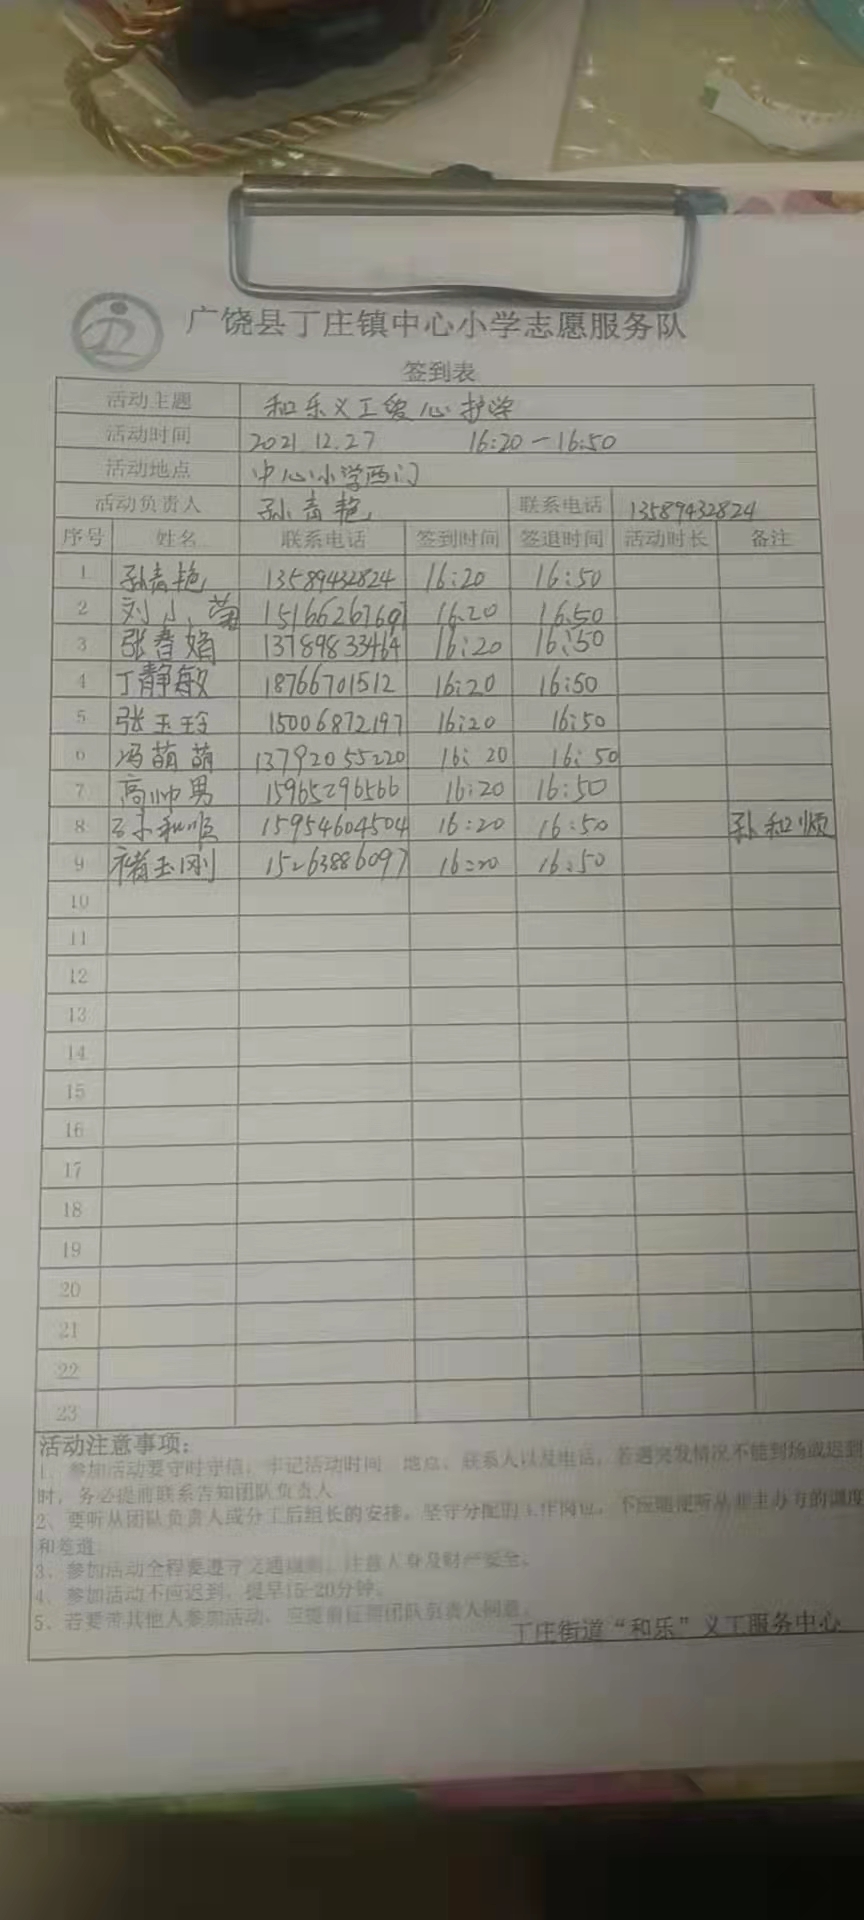 广饶县丁庄镇中心小学志愿服务队
签到表
活动主题 和乐义工爱心护学
活动时间 2021.12.27 16:20-16:50
活动地点 中心小学西门
活动负责人 孙青艳 联系电话 13589432824
序号 姓名 联系电话 签到时间 签退时间 活动时长 备注
1 孙青艳 13589432824 16:20 16:50
2 刘小菊 15166267691 16:20 16:50
3 张春娟 13789833464 16:20 16:50
4 丁静敏 18766701512 16:20 16:50
5 张玉玲 15006872197 16:20 16:50
6 冯萌萌 13792055220 16:20 16:50
7 高帅男 15965296566 16:20 16:50
8 孙和顺 15954604504 16:20 16:50 孙和顺
9 褚玉刚 15263886097 16:20 16:50
10
11
12
13
14
15
16
17
18
19
20
21
22
23
活动注意事项：
1、参加活动要守时守信，牢记活动时间、地点、联系人以及电话，若遇突发情况不能到场或迟到
时，务必提前联系告知团队负责人
2、要听从团队负责人或分工后组长的安排，坚守分配的工作岗位，不应随便听从非主办方的调度
和差遣
3、参加活动全程要遵守交通规则，注意人身及财产安全。
4、参加活动不应迟到，提早15-20分钟。
5、若要带其他人参加活动，应提前征得团队负责人同意。
丁庄街道“和乐”义工服务中心